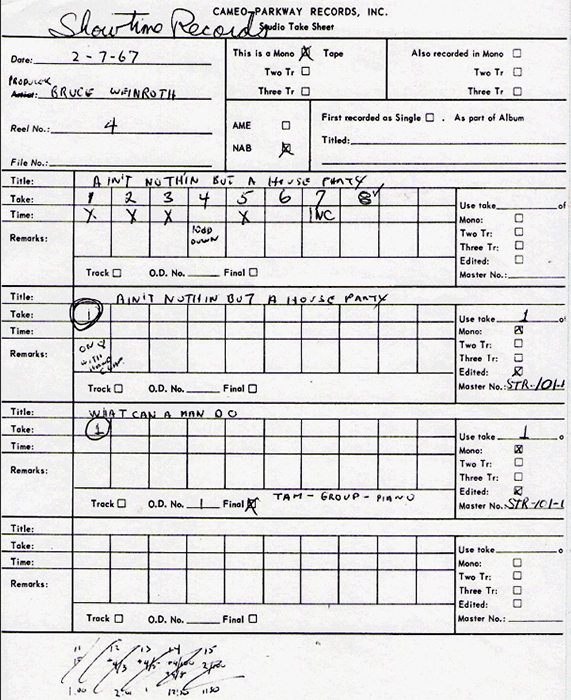 CAMEO-PARKWAY RECORDS, INC.
Showtime Records
Studio Take Sheet
Date: 2-7-67
This is a Mono Tape
Also recorded in Mono
Two Tr
Two Tr
PRODUCER
Artist: BRUCE WEINROTH
Three Tr
Three Tr
Reel No.: 4
AME
First recorded as Single . As part of Album
NAB
Titled:
File No.:
Title: AIN'T NOTHIN BUT A HOUSE PARTY
Take: 1 2 3 4 5 6 7 8
Use take of
Time: X X X X INC
Mono:
Remarks:
Two Tr:
Three Tr:
Edited:
Track O.D. No. Final
Master No.:
Title: AIN'T NOTHIN BUT A HOUSE PARTY
Take: 1
Use take 1 o
Time:
Mono:
Remarks: ONLY WITH
Two Tr:
Three Tr:
Edited:
Track O.D. No. Final
Master No.: STR-101-1
Title: WHAT CAN A MAN DO
Take: 1
Use take 1 o
Time:
Mono:
Remarks:
Two Tr:
Three Tr:
Edited:
Track O.D. No. 1 Final TAM-GROUP-PIANO
Master No.: STR-101-1
Title:
Take:
Use take o
Time:
Mono:
Remarks:
Two Tr:
Three Tr:
Edited:
Track O.D. No. Final
Master No.:
11 12 13 14 15